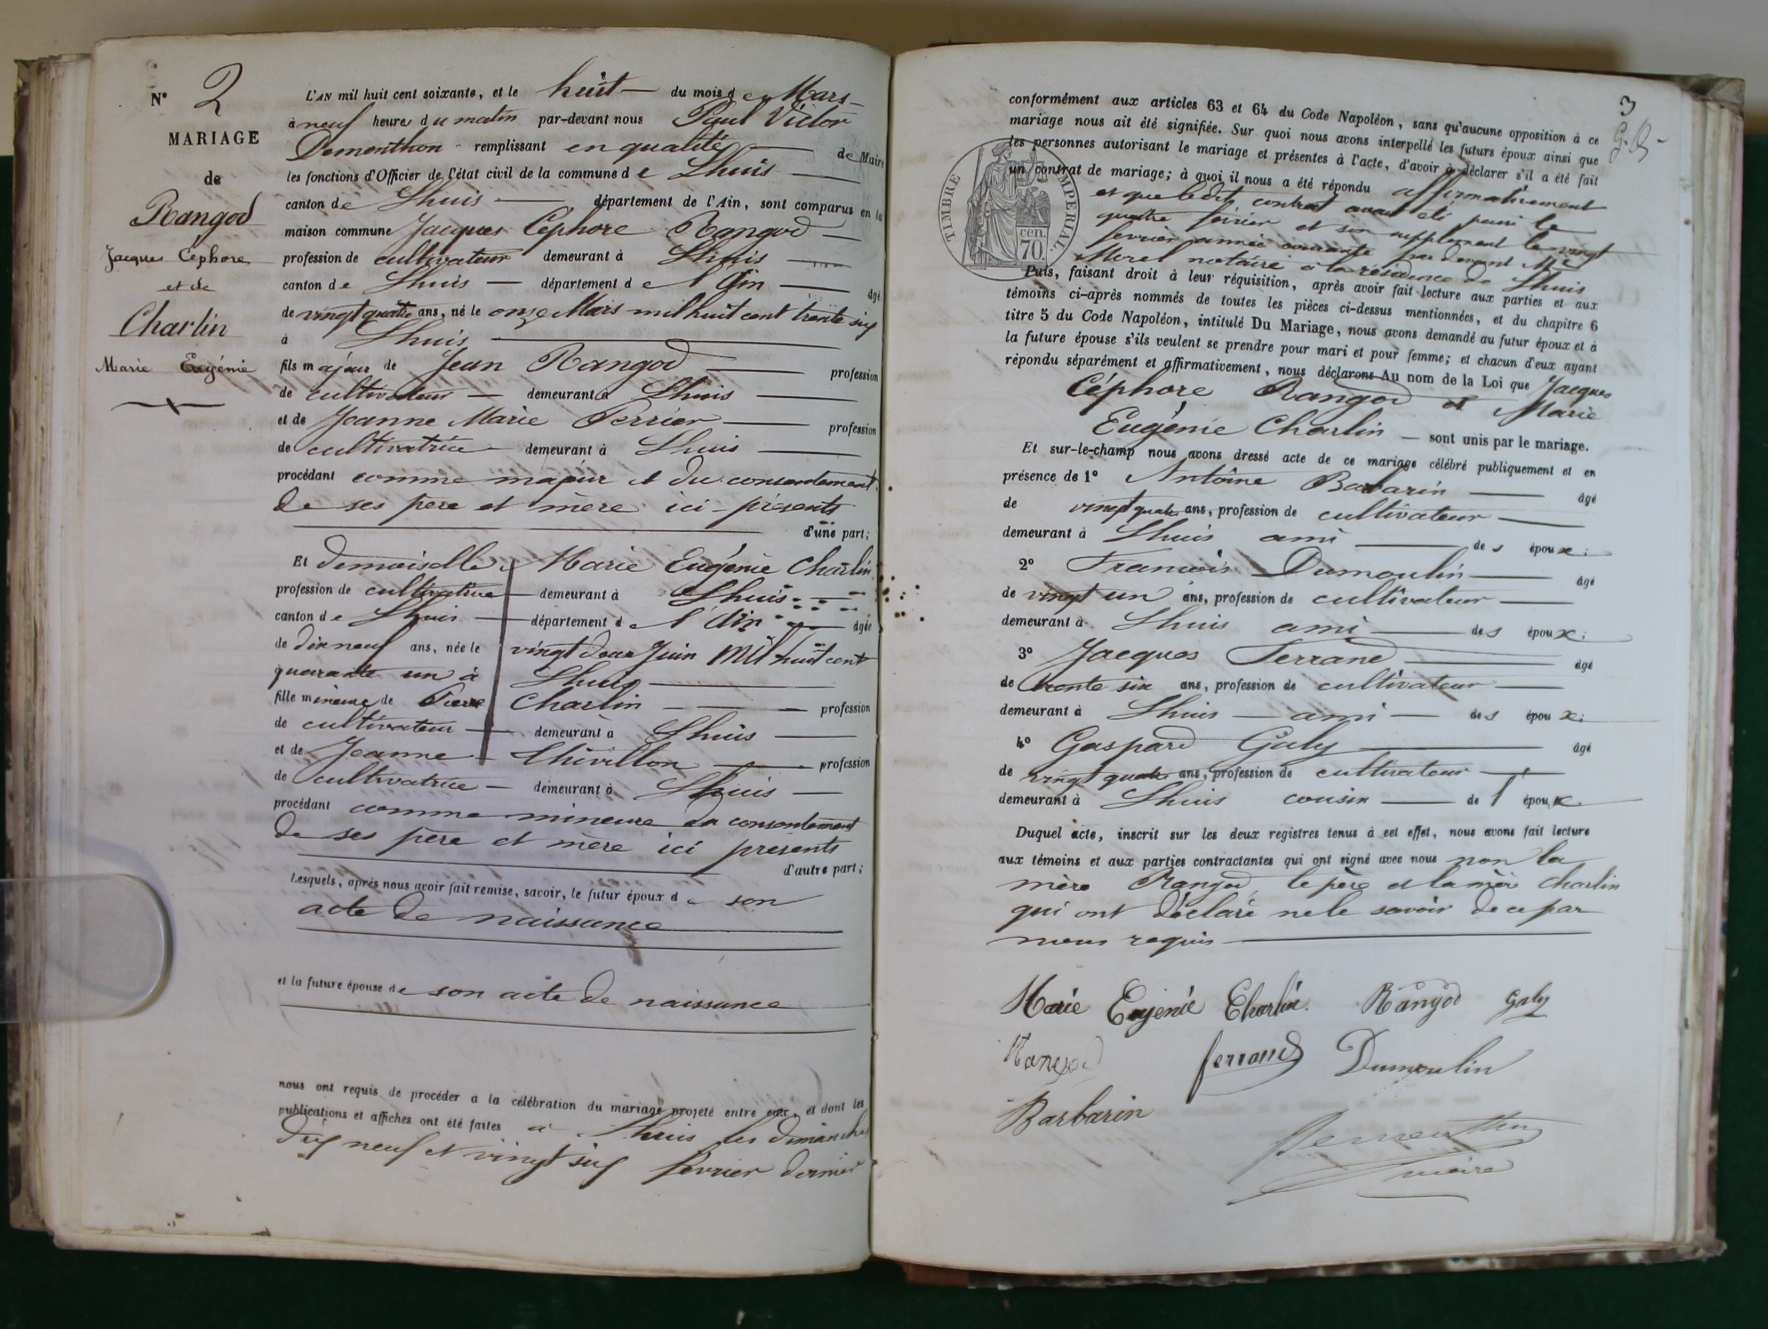 N° 2
MARIAGE
de
Rangod
Jacques Céphore
et de
Charlin
Marie Eugénie
L'AN mil huit cent soixante, et le huit du mois de Mars
à neuf heures du matin par-devant nous Paul Victor
Demonthon remplissant en qualité de Maire
les fonctions d'Officier de l'état civil de la commune de Lhuis
canton de Lhuis département de l'Ain, sont comparus en la
maison commune Jacques Céphore Rangod
profession de cultivateur demeurant à Lhuis
canton de Lhuis département de l'Ain âgé
de vingt quatre ans, né le onze Mars mil huit cent trente six
à Lhuis
fils majeur de Jean Rangod profession
de cultivateur demeurant à Lhuis
et de Jeanne Marie Perrier profession
de cultivatrice demeurant à Lhuis
procédant comme majeur et du consentement
de ses père et mère ici présents
d'une part;
Et demoiselle Marie Eugénie Charlin
profession de cultivatrice demeurant à Lhuis
canton de Lhuis département de l'Ain âgée
de dix neuf ans, née le vingt deux Juin mil huit cent
quarante un à Lhuis
fille mineure de Pierre Charlin profession
de cultivateur demeurant à Lhuis
et de Jeanne Chivillon profession
de cultivatrice demeurant à Lhuis
procédant comme mineure du consentement
de ses père et mère ici presents
d'autre part;
Lesquels, après nous avoir fait remise, savoir, le futur époux de son
acte de naissance
et la future épouse de son acte de naissance
nous ont requis de procéder à la célébration du mariage projeté entre eux, et dont les
publications et affiches ont été faites à Lhuis les dimanches
dix neuf et vingt six février dernier
3
conformément aux articles 63 et 64 du Code Napoléon, sans qu'aucune opposition à ce
mariage nous ait été signifiée. Sur quoi nous avons interpellé les futurs époux ainsi que
les personnes autorisant le mariage et présentes à l'acte, d'avoir à déclarer s'il a été fait
un contrat de mariage; à quoi il nous a été répondu affirmativement
et que ledit contrat avait été passé le
quatre février et son supplément le vingt
février année courante par devant Me
Morel notaire à la résidence de Lhuis
TIMBRE IMPERIAL
cen.
70.
Puis, faisant droit à leur réquisition, après avoir fait lecture aux parties et aux
témoins ci-après nommés de toutes les pièces ci-dessus mentionnées, et du chapitre 6
titre 5 du Code Napoléon, intitulé Du Mariage, nous avons demandé au futur époux et à
la future épouse s'ils veulent se prendre pour mari et pour femme; et chacun d'eux ayant
répondu séparément et affirmativement, nous déclarons Au nom de la Loi que Jacques
Céphore Rangod et Marie
Eugénie Charlin sont unis par le mariage.
Et sur-le-champ nous avons dressé acte de ce mariage célébré publiquement et en
présence de 1° Antoine Barbarin âgé
de vingt quatre ans, profession de cultivateur
demeurant à Lhuis ami des époux;
2° François Dumoulin âgé
de vingt un ans, profession de cultivateur
demeurant à Lhuis ami des époux;
3° Jacques Ferrand âgé
de trente six ans, profession de cultivateur
demeurant à Lhuis ami des époux;
4° Gaspard Galy âgé
de vingt quatre ans, profession de cultivateur
demeurant à Lhuis cousin de l'époux
Duquel acte, inscrit sur les deux registres tenus à cet effet, nous avons fait lecture
aux témoins et aux parties contractantes qui ont signé avec nous non la
mère Rangod, le père et la mère Charlin
qui ont déclaré ne le savoir de ce par
nous requis
Marie Eugénie Charlin. Rangod Galy
Rangod ferrand Dumoulin
Barbarin
Demonthon
maire